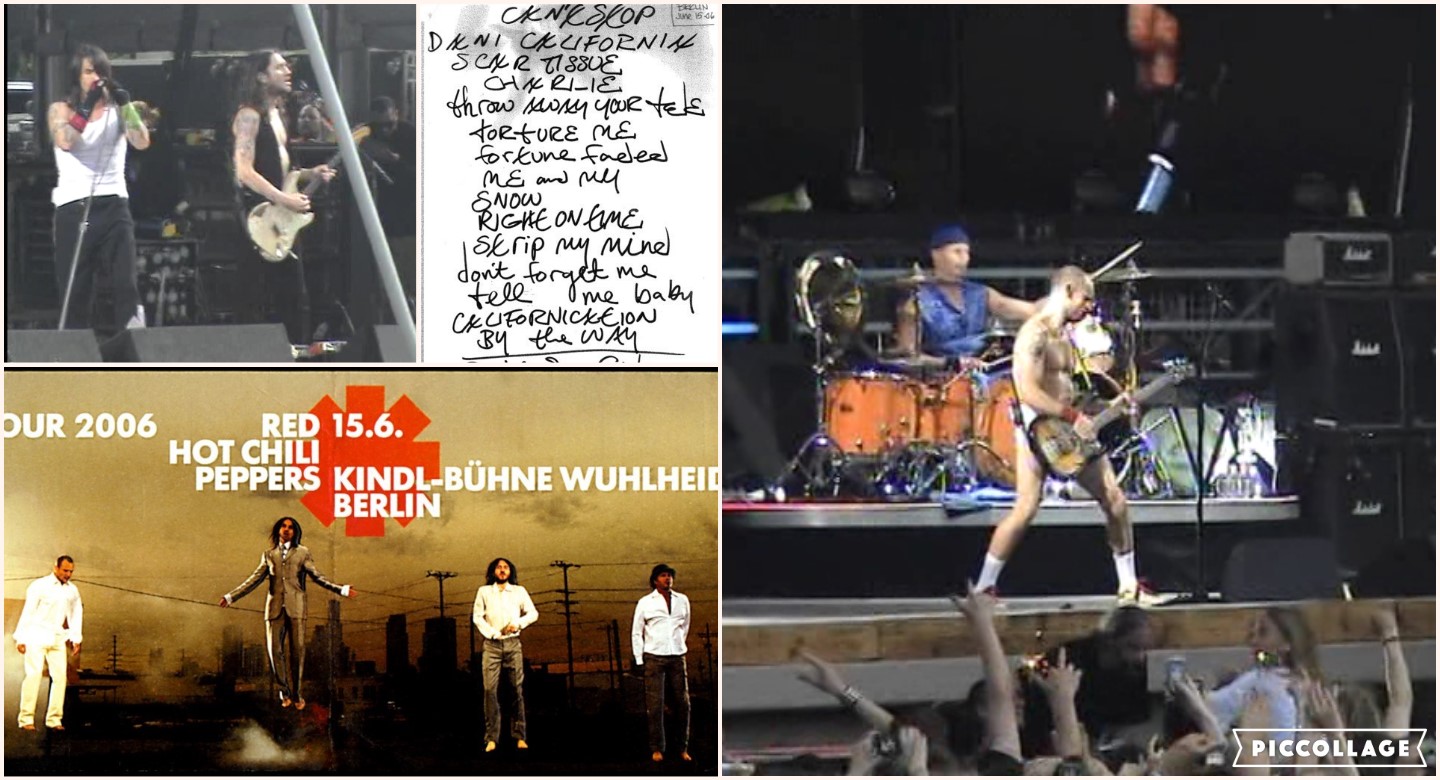 CAN'T STOP
BERLIN
June 15 -06
DANI CALIFORNIA
SCAR TISSUE
CHARLIE
throw AWAY YOUR tELE
tORtURE ME
fortune faded
ME and MY
SNOW
RIGHt ON tIME
Strip my mind
don't forget me
tell me baby
CALIFORNICAtION
BY the WAY
OUR 2006
RED
HOT CHILI
PEPPERS
15.6.
KINDL-BÜHNE WUHLHEID
BERLIN
Marshall
PICCOLLAGE